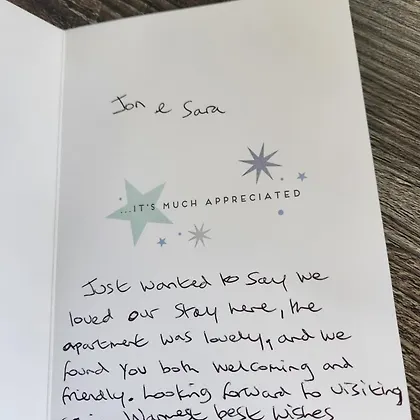 Jon & Sara
...IT'S MUCH APPRECIATED
Just wanted to say we
loved our stay here, the
apartment was lovely, and we
found you both welcoming and
friendly. Looking forward to visiting
Warmest best wishes